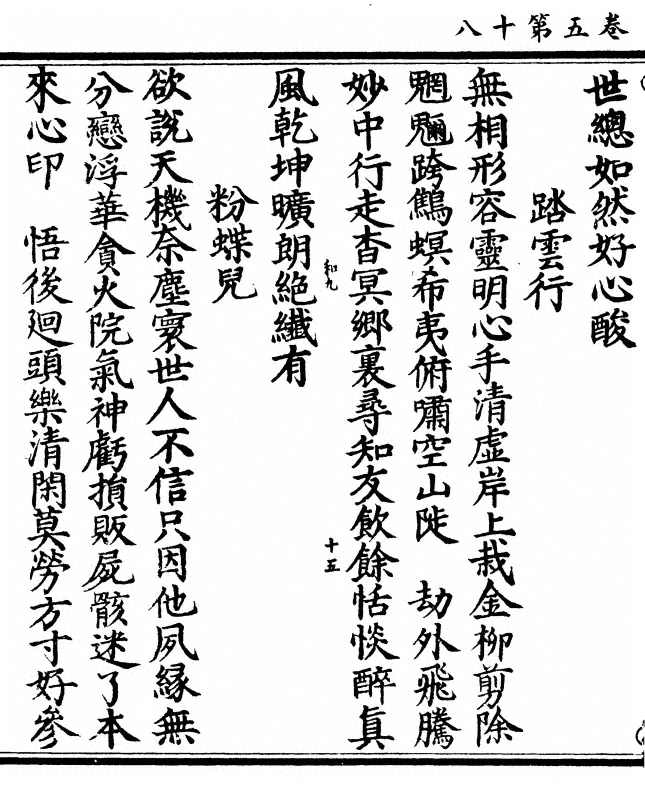 卷五第十八
世總如然好心酸
踏雲行
無相形容靈明心手清虛岸上栽金柳剪除
魍魎跨鷦螟希夷俯嘯空山陡　劫外飛騰
妙中行走杳冥鄉裏尋知友飲餘恬惔醉眞
和九
十五
風乾坤曠朗絶纖有
粉蝶兒
欲説天機奈塵寰世人不信只因他夙緣無
分戀浮華貪火院氣神虧損販屍骸迷了本
來心印　悟後廻頭樂清閑莫勞方寸好參